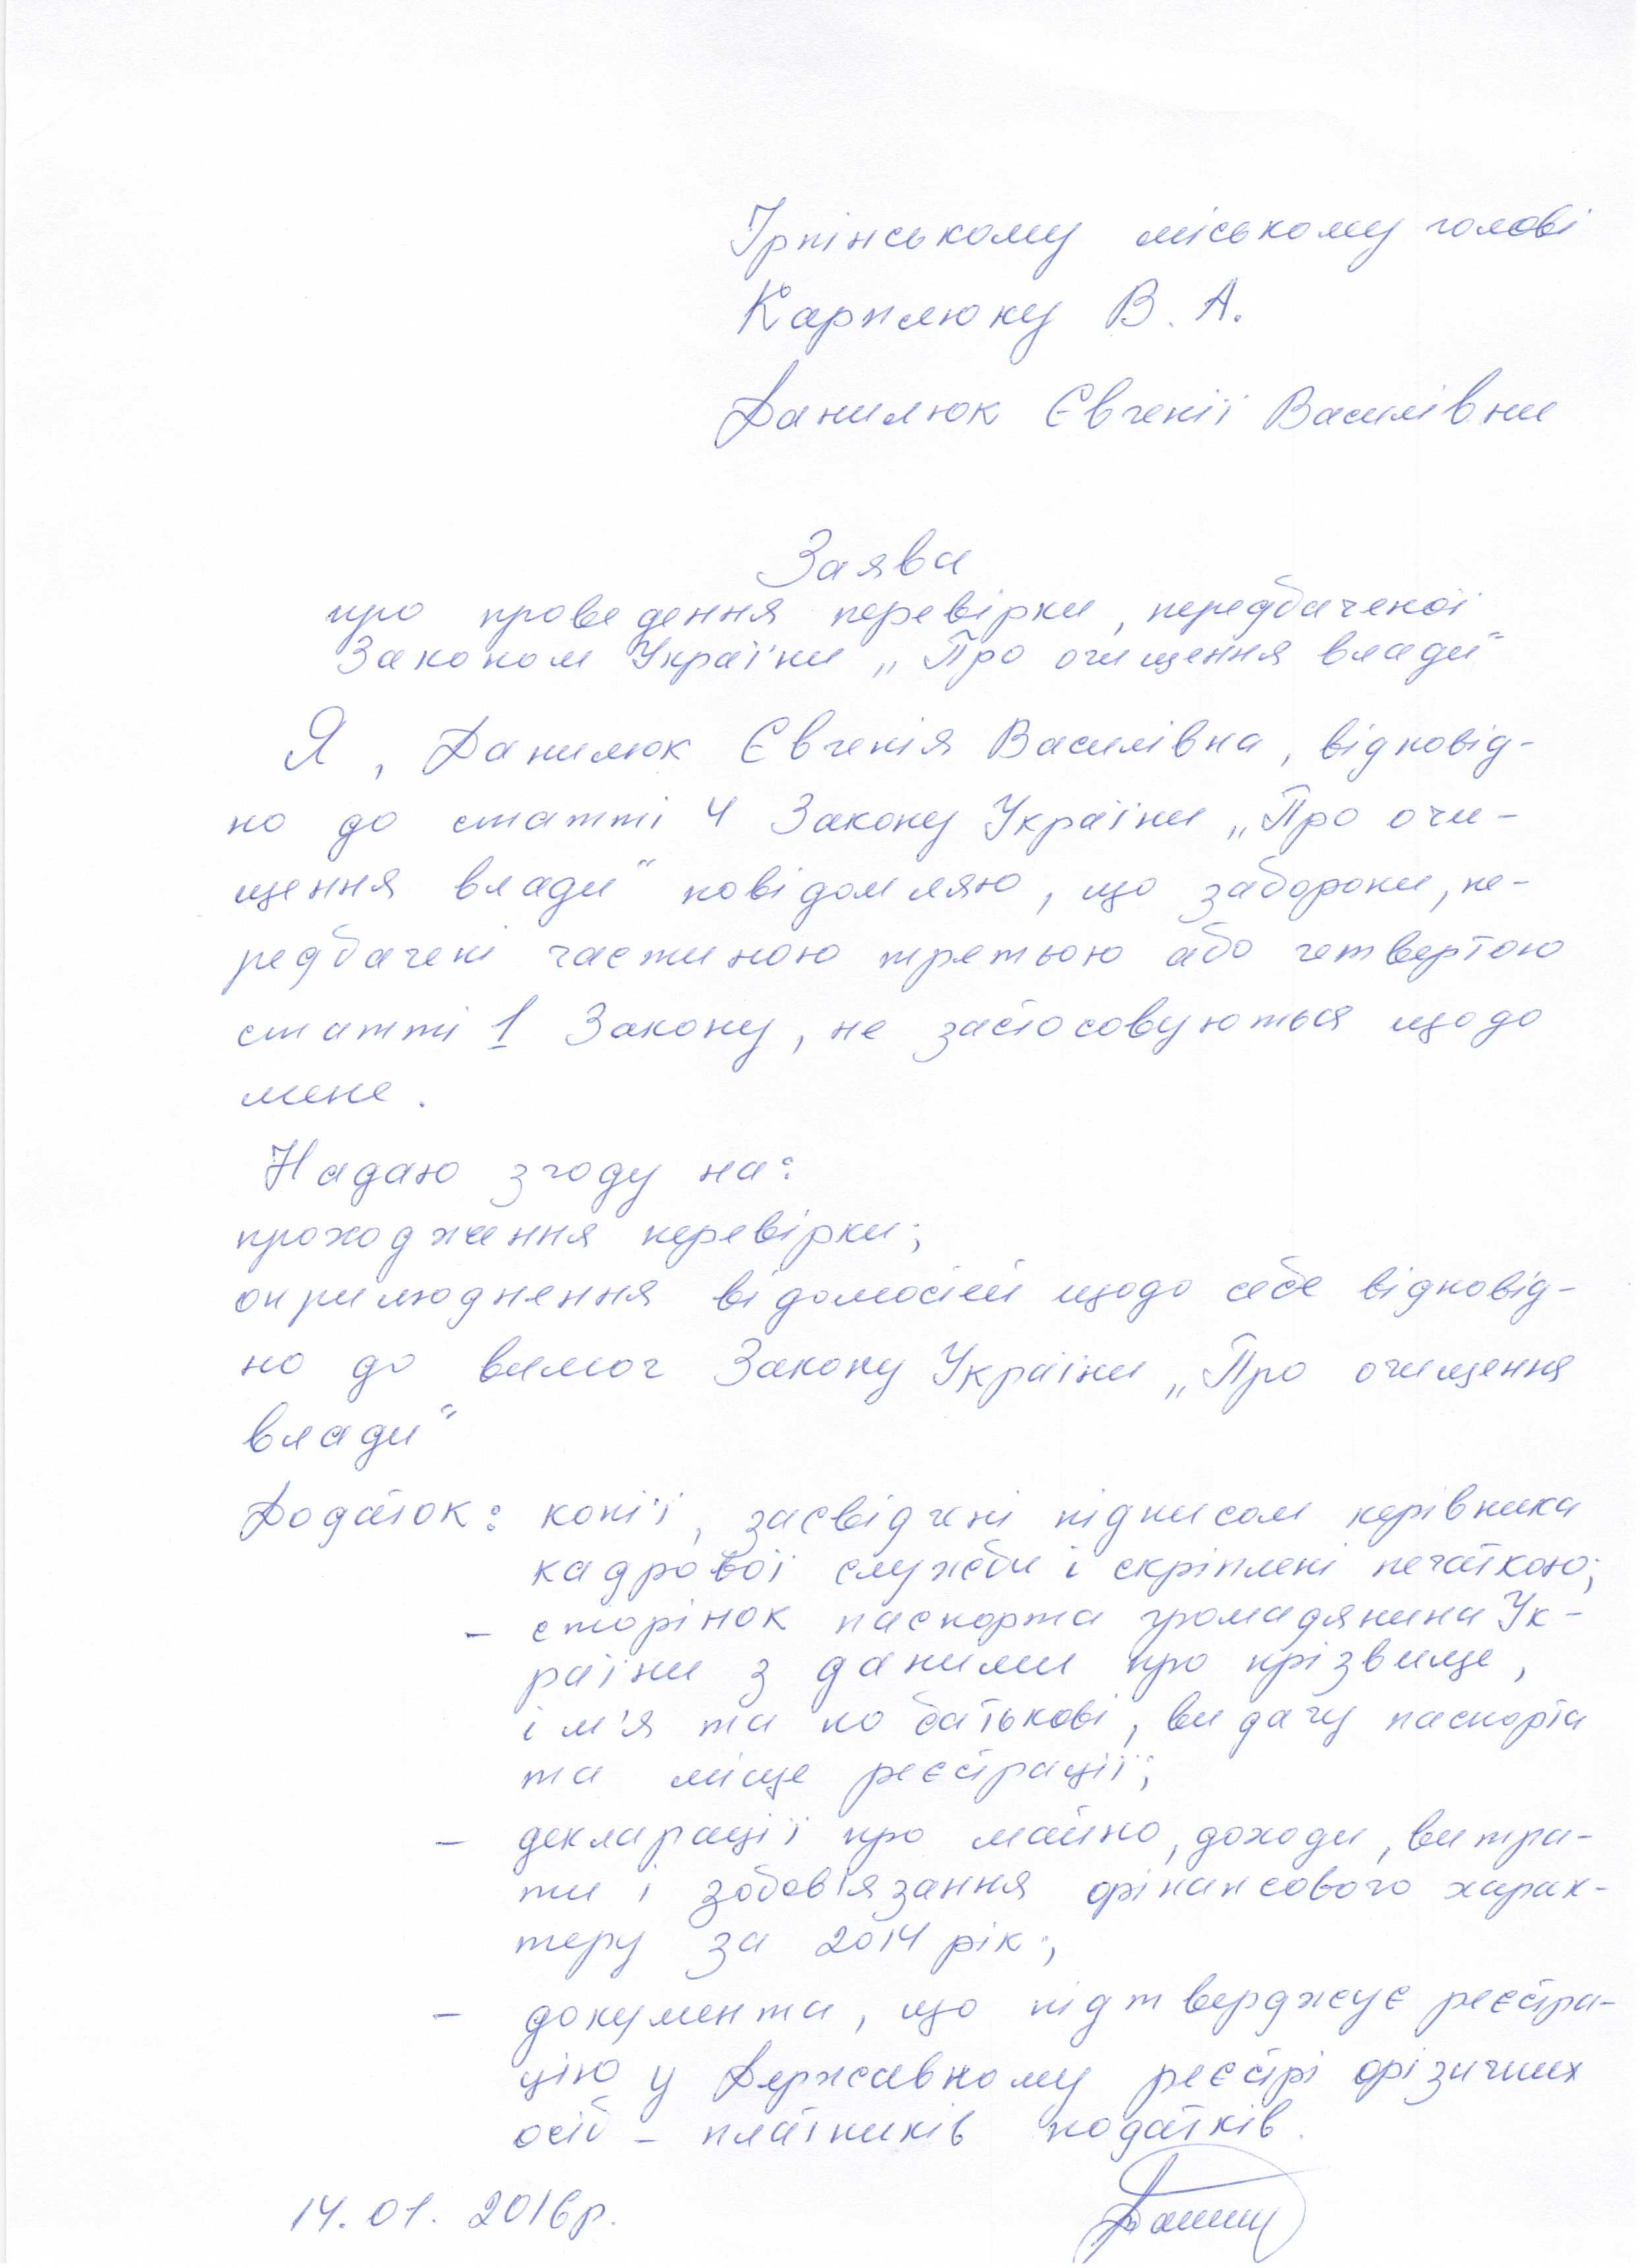 Ірпінському міському голові
Карплюку В. А.
Данилюк Євгенії Василівни
Заява
про проведення перевірки, передбаченої
Законом України „Про очищення влади“
Я, Данилюк Євгенія Василівна, відповід-
но до статті 4 Закону України „Про очи-
щення влади“ повідомляю, що заборони, пе-
редбачені частиною третьою або четвертою
статті 1 Закону, не застосовуються щодо
мене.
Надаю згоду на:
проходження перевірки;
оприлюднення відомостей щодо себе відповід-
но до вимог Закону України „Про очищення
влади“
Додаток: копії, засвідчені підписом керівника
кадрової служби і скріплені печаткою;
- сторінок паспорта громадянина Ук-
раїни з даними про прізвище,
ім'я та по батькові, видачу паспорта
та місце реєстрації;
- декларації про майно, доходи, витра-
ти і зобов'язання фінансового харак-
теру за 2014 рік;
- документа, що підтверджує реєстра-
цію у Державному реєстрі фізичних
осіб - платників податків.
14.01.2016р.